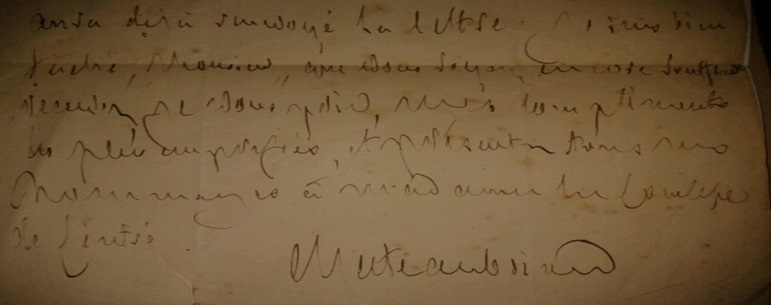 aura déjà renvoyé la lettre. Je suis bien
fâché, Monsieur, que vous soyez encore souffrant
recevez, je vous prie, mes compliments
les plus empressés, et présentez tous mes
hommages à madame la Comtesse
de
Chateaubriand